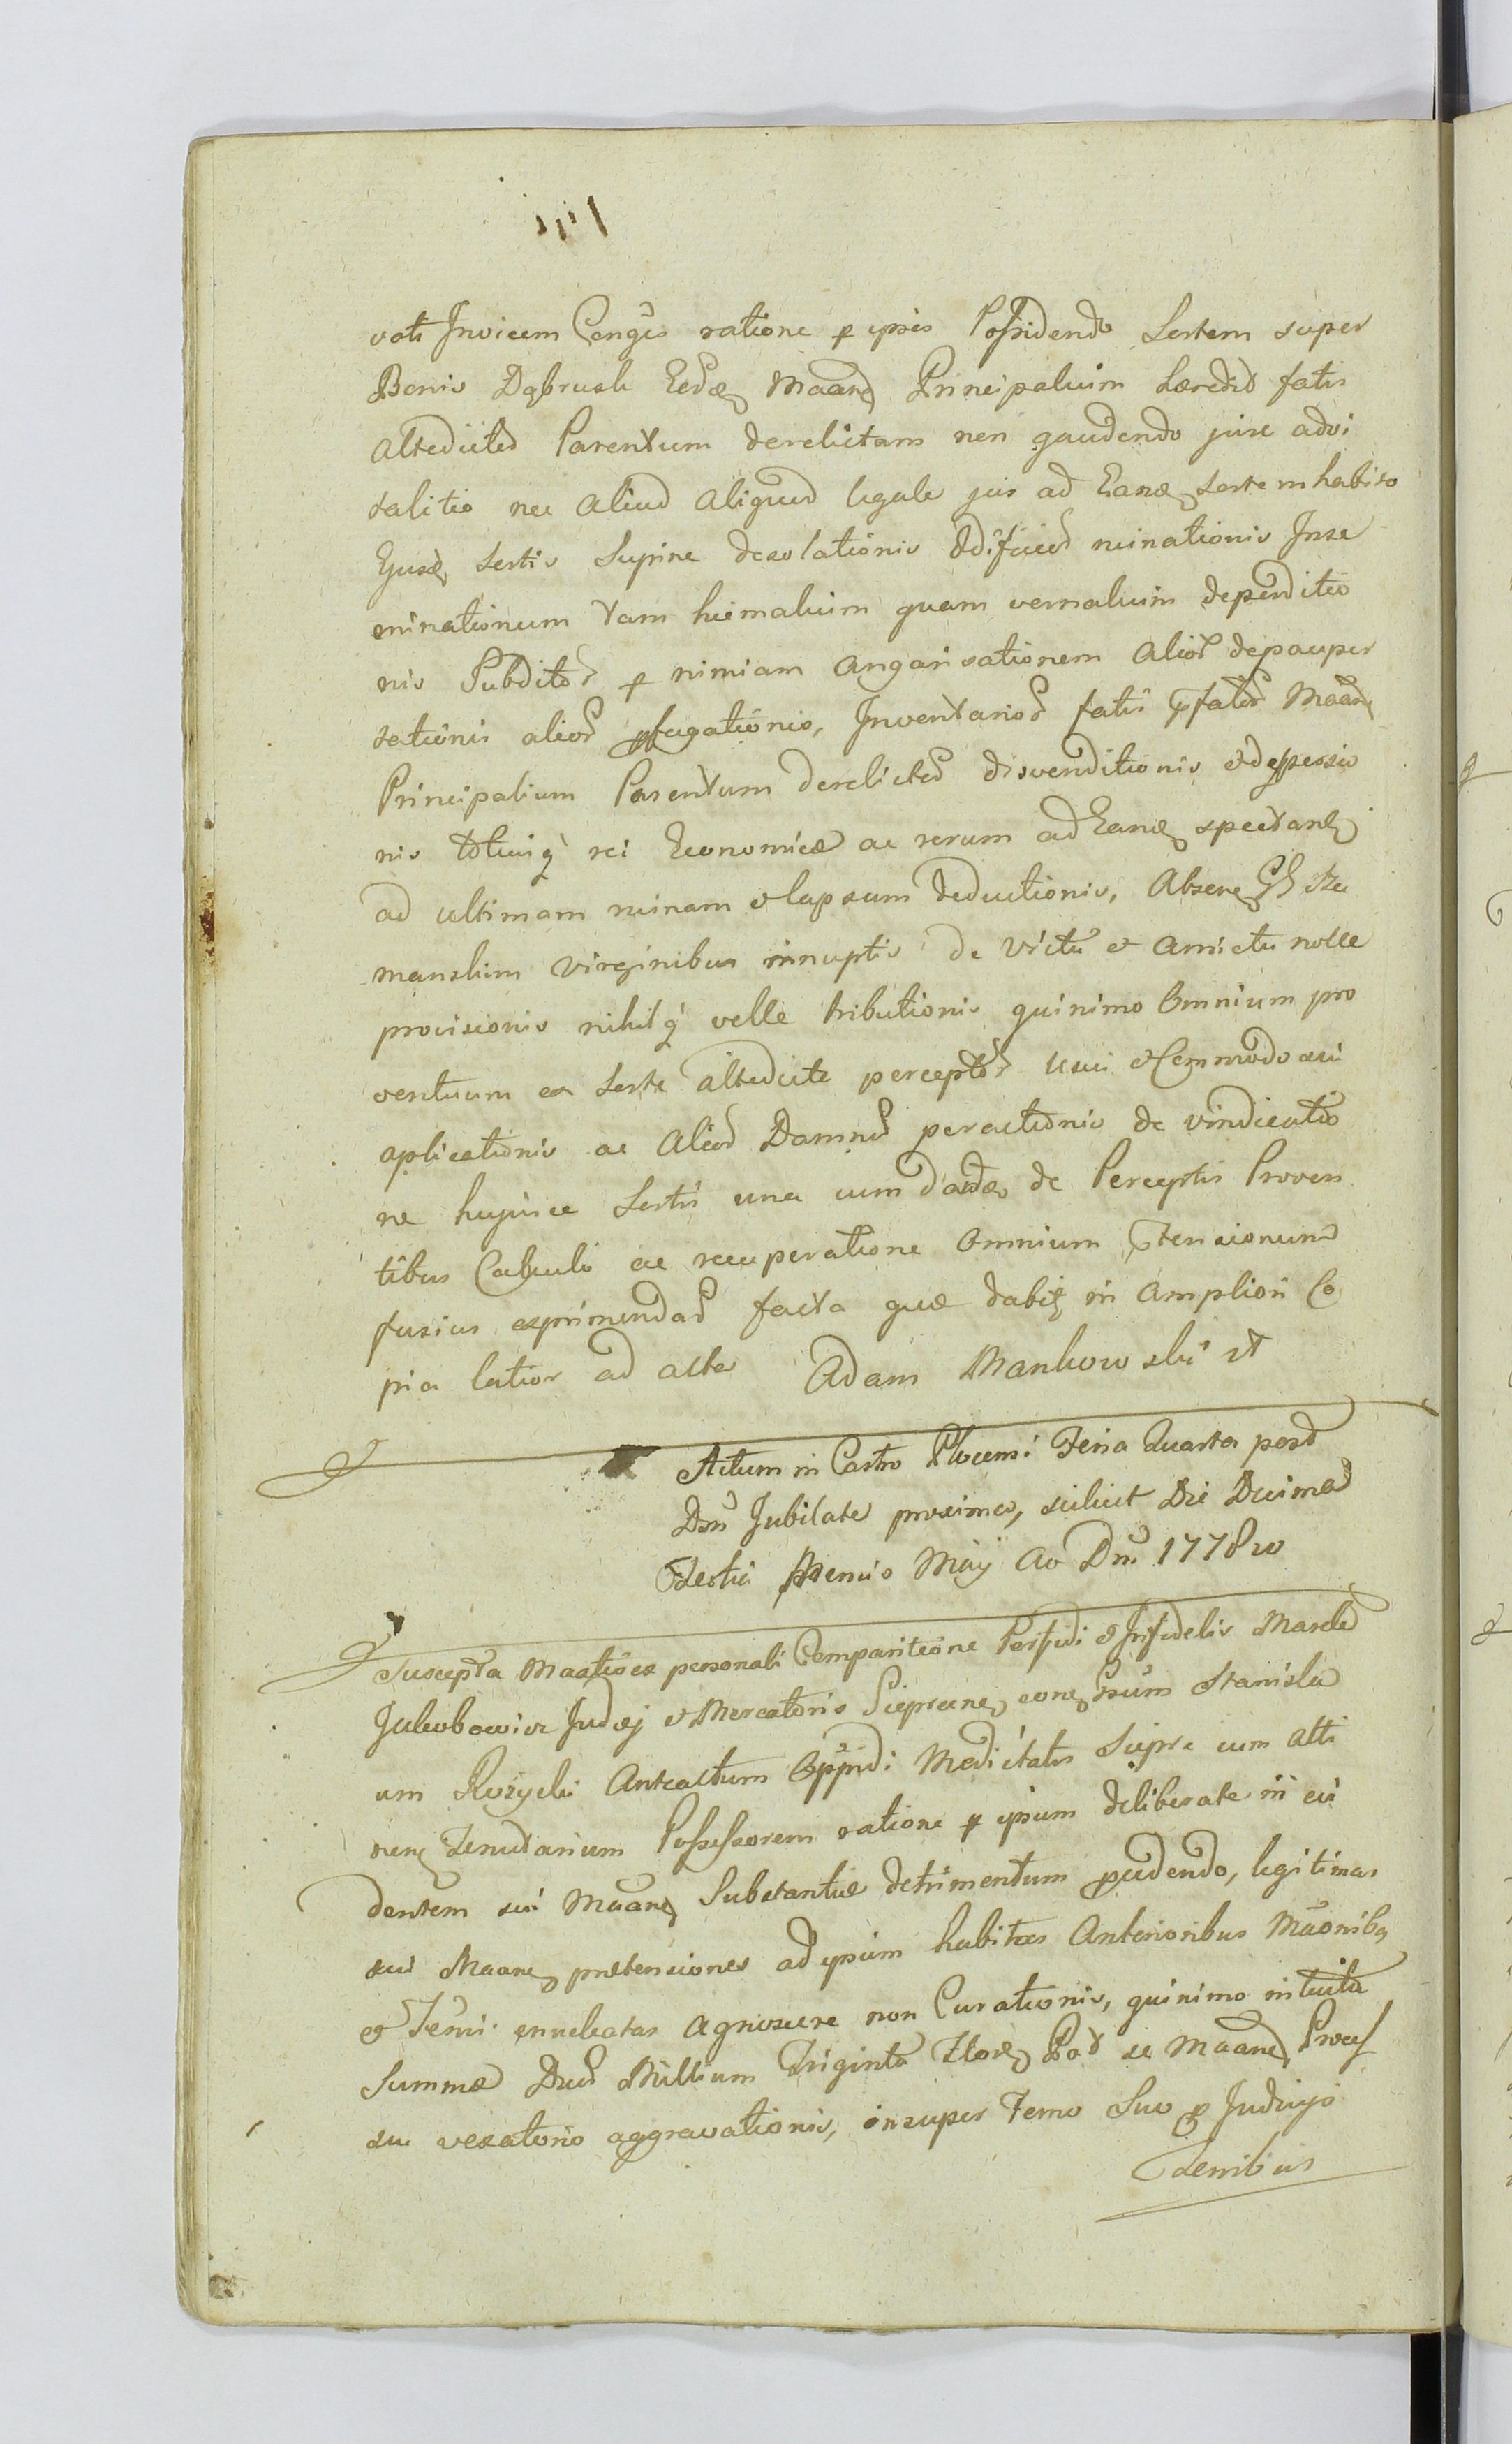 voti Invicem Conges ratione p ipsos Possidendo Sortem super
Bonis Dąbrusk Eedē Maānē Principalium haeredit fatis
altedictos Parentum derelictam non gaudendo jure advi
talitio nec aliud aliquod legale jus ad Eandē sortem habito
Ejusdē sortis Supine desolationis Edificior ruinationis Inse
minationum tam hiemalium quam vernalium deperditio
nis Subditor p nimiam angarisationem alior depauper
sationis alior profugationis, Inventarior fatis pfator Maān
Principalium Parentum derelictor disvenditionis et depressio
nis totiusq rei Economicae ac rerum ad Eandē spectan
ad ultimam ruinam et lapsum deductionis, Absenē Gs Szu
manskim virginibus innuptis de victu et amictu nolle
provisionis nihilq velle tributionis quinimo omnium pro
ventuum ex sorte altedicta perceptor usui et Commodo sui
aplicationis ac alior Damnor peractionis de vindicatio
ne hujusce Sortis una cum dandō de Perceptis Proven
tibus Calculo ac recuperatione omnium ptensionum
fusius exprimendar facta quae dabit in ampliori Co
pia latior ad acta Adam Mankowski mp
Actum in Castro Plocensi Feria Quarta post
Dnicā Jubilate proxima, scilicet Die Decima
Tertia Mensis Maij Ao Dni 1778vo
Suscepta Maātio ex personali Comparitione Perfidi et Infidelis Marcka
Jakobowicz Judaej et Mercatoris Sieprcenē conē Gsum Stanisla
um Rozycki Anteactum Oppidi Medietatis Sieprc cum atti
nen Tenutarium Possessorem ratione p ipsum deliberate in evi
dentem sui Maanē Substantiae detrimentum procedendo, legitimas
sui Maanē praetensiones ad ipsum habitas Anterioribus Māonibꝫ
et Termi enucleatas agnoscere non Curationis, quinimo intuitu
Summae Duor Millium Triginta Floren Pol se Maanē Proces
su vexatorio aggravationis, insuper Termo Suo p Judicijs
Terribus